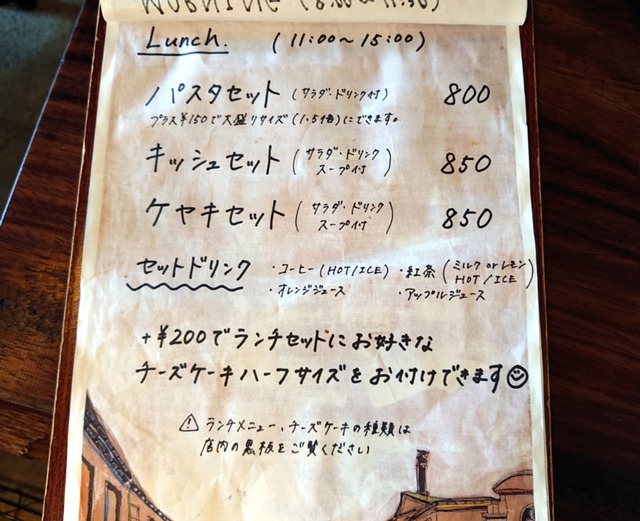 MORNING (8:00~11:30)
Lunch. (11:00~15:00)
パスタセット (サラダ・ドリンク付) 800
プラス¥150で大盛りサイズ(1.5倍)にできます。
キッシュセット (サラダ・ドリンク スープ付) 850
ケヤキセット (サラダ・ドリンク スープ付) 850
セットドリンク ・コーヒー(HOT/ICE) ・紅茶(ミルク or レモン HOT/ICE)
・オレンジジュース ・アップルジュース
+¥200でランチセットにお好きな
チーズケーキハーフサイズをお付けできます☺
⚠ ランチメニュー、チーズケーキの種類は
店内の黒板をご覧ください